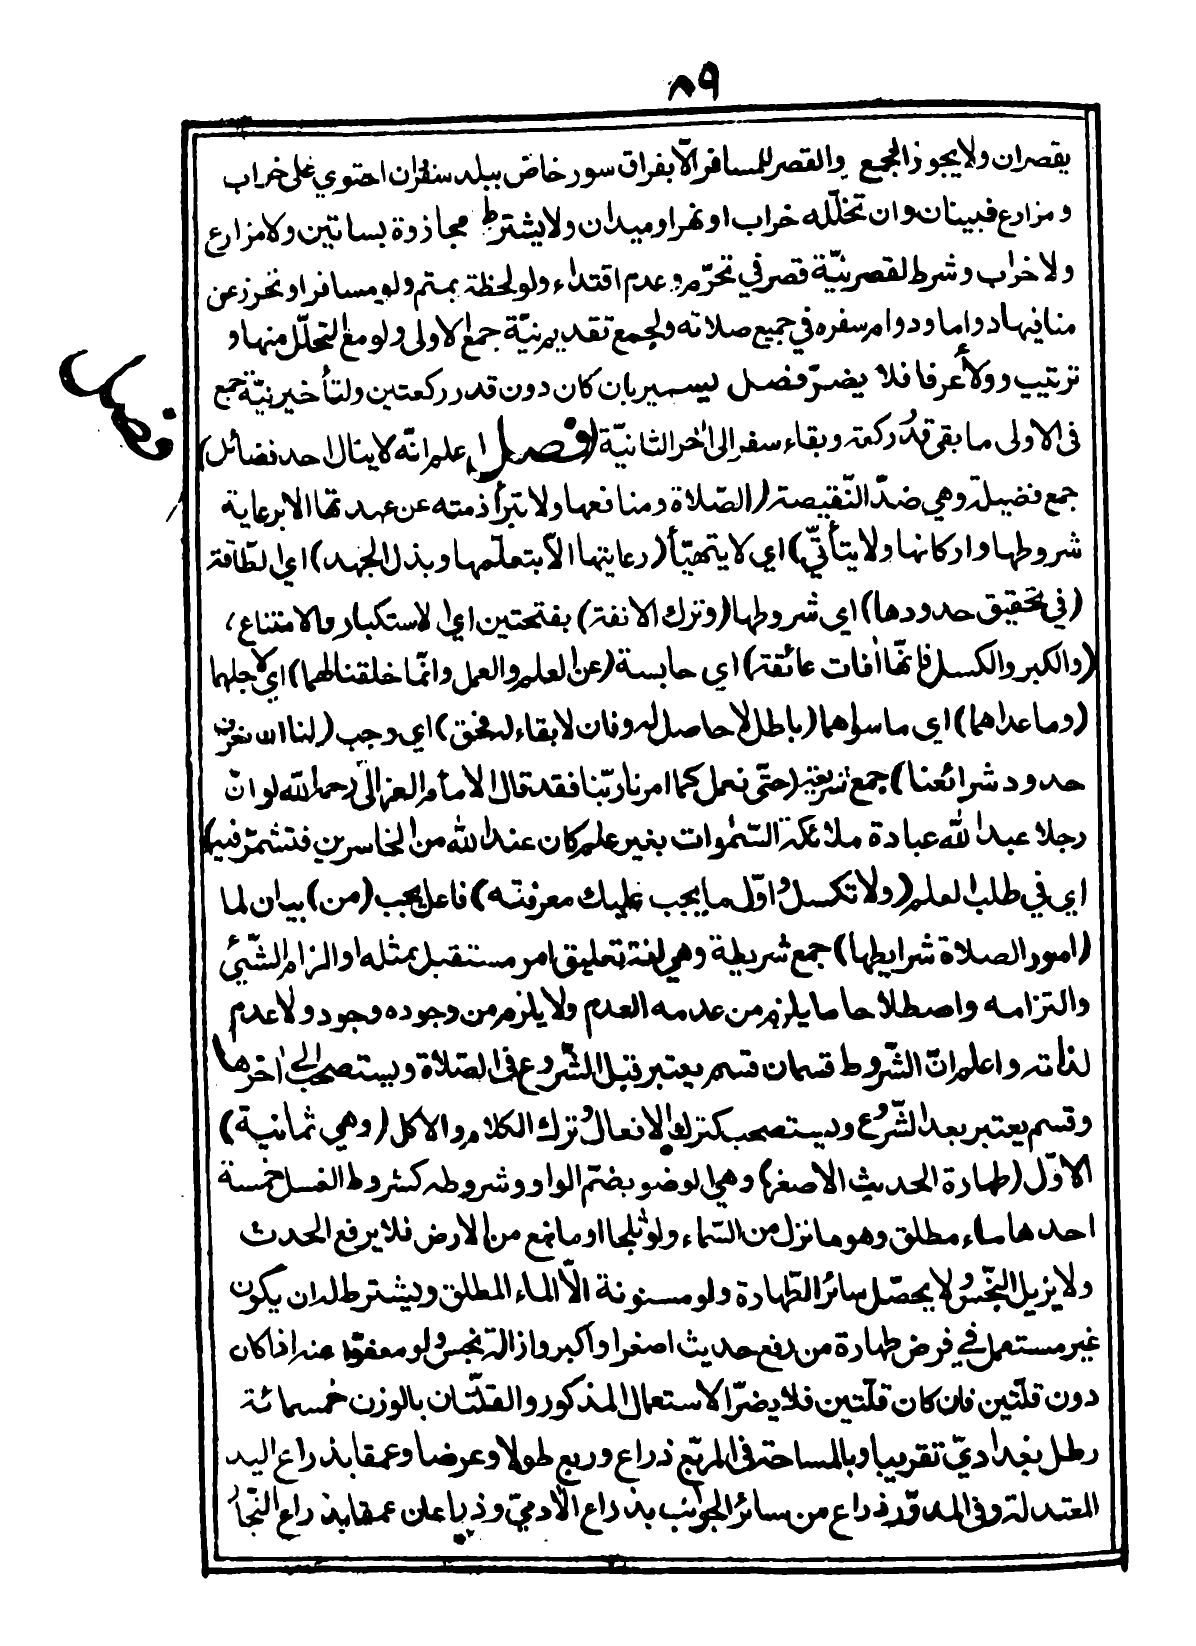 ٨٩
يقصران ولا يجوز الجمع والقصر للمسافر الّا بفراق سور خاصّ ببلد سفر ان احتوي على خراب
ومزارع فبينان وان تخلّله خراب او نهر او ميدان ولا يشترط مجاذوة بساتين ولا مزارع
ولا خراب وشرط لقصر نيّة قصر في تحرّم وعدم اقتداء ولو لحظة بمتم ولو مسافرا وتحرز عن
منافيها دواما ودوام سفره في جميع صلاته ولجمع تقديم نيّة جمع الاولى ولو مع التحلّل منها و
ترتيب وولاء عرفا فلا يضرّ فصل يسير بان كان دون قدر ركعتين ولتأخير نيّة جمع
فى الاولى ما بقى قدر ركعة وبقاء سفر الى اٰخر الثانيّة (فصل) اعلم انّه لا ينال احد فضائل)
فصل
جمع فضيلة وهي ضدّ النّقيصة (الصّلاة ومنافعها ولا تبرأ ذمته عن عهدتها الا برعاية
شروطها واركانها ولا يتأتّي) اي لا يتهيّأ (رعايتها الّا بتعلّمها وبذل الجهد) اي الطّاقة
(في تحقيق حدودها) اي شروطها (وترك الانفة) بفتحتين اي الاستكبار والامتناع،
(والكبر والكسل فانّها اٰفات عائقة) اي حابسة (عن العلم والعمل وانّما خلقنا لهما) اي لاجلهما
(وما عداهما) اي ما سواهما (باطل لا حاصل له وفان لا بقاء له فحق) اي وجب (لنا ان نعرف
حدود شرائعنا) جمع شريعة (حتّى نعمل كما امرنا ربّنا فقد قال الامام الغزالىّ رحمه الله لو انّ
رجلا عبد الله عبادة ملائكة السّمٰوات بغير علم كان عند الله من الخاسرين فتشمّر فيه)
اي في طلب العلم (ولا تكسل واوّل ما يجب عليك معرفته) فاعل يجب (من) بيان لما
(امور الصلاة شرايطها) جمع شريطة وهي لغة تعليق امر مستقبل بمثله او الزام الشّيئ
والتزامه واصطلاحا ما يلزم من عدمه العدم ولا يلزم من وجوده وجود ولا عدم
لذاته واعلم انّ الشّروط قسمان قسم يعتبر قبل الشّروع فى الصّلاة ويستصحب الى اٰخرها
وقسم يعتبر بعد الشّروع ويستصحب كترك الافعال وترك الكلام والاكل (وهي ثمانية)
الاوّل (طهارة الحديث الاصغر) وهي الوضوء بضمّ الواو وشروطه كشروط الغسل خمسة
احدها ماء مطلق وهو ما نزل من السّماء ولو ثلجا او ما نبع من الارض فلا يرفع الحدث
ولا يزيل النّجس ولا يحصّل سائر الطّهارة ولو مسنونة الّا الماء المطلق ويشترط له ان يكون
غير مستعمل في فرض طهارة من رفع حديث اصغر او اكبر وازالة نجس ولو معفوّا عنه اذا كان
دون قلّتين فان كان قلّتين فلا يضرّ الاستعمال المذكور والقلّتان بالوزن خمسمائة
رطل بغداديّ تقريبا وبالمساحة فى المربّع ذراع وربع طولا وعرضا وعمقا بذراع اليد
المعتدلة وفى المدوّر ذراع من سائر الجوانب بذراع الاٰدميّ وذراعان عمقا بذراع النّجّار